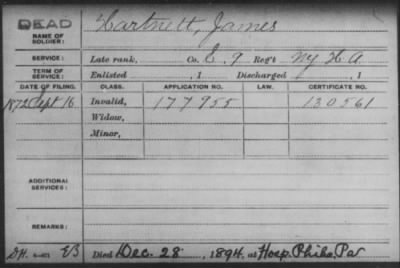 DEAD
NAME OF SOLDIER: Hartnett, James
SERVICE: Late rank, Co. E. 9 Reg't NY H A
TERM OF SERVICE: Enlisted , 1 Discharged , 1
DATE OF FILING. CLASS. APPLICATION NO. LAW. CERTIFICATE NO.
1872 Sept 16 Invalid, 177955 130561
Widow,
Minor,
ADDITIONAL SERVICES:
REMARKS:
Died Dec. 28, 1894, at Hosp. Phila, Pa